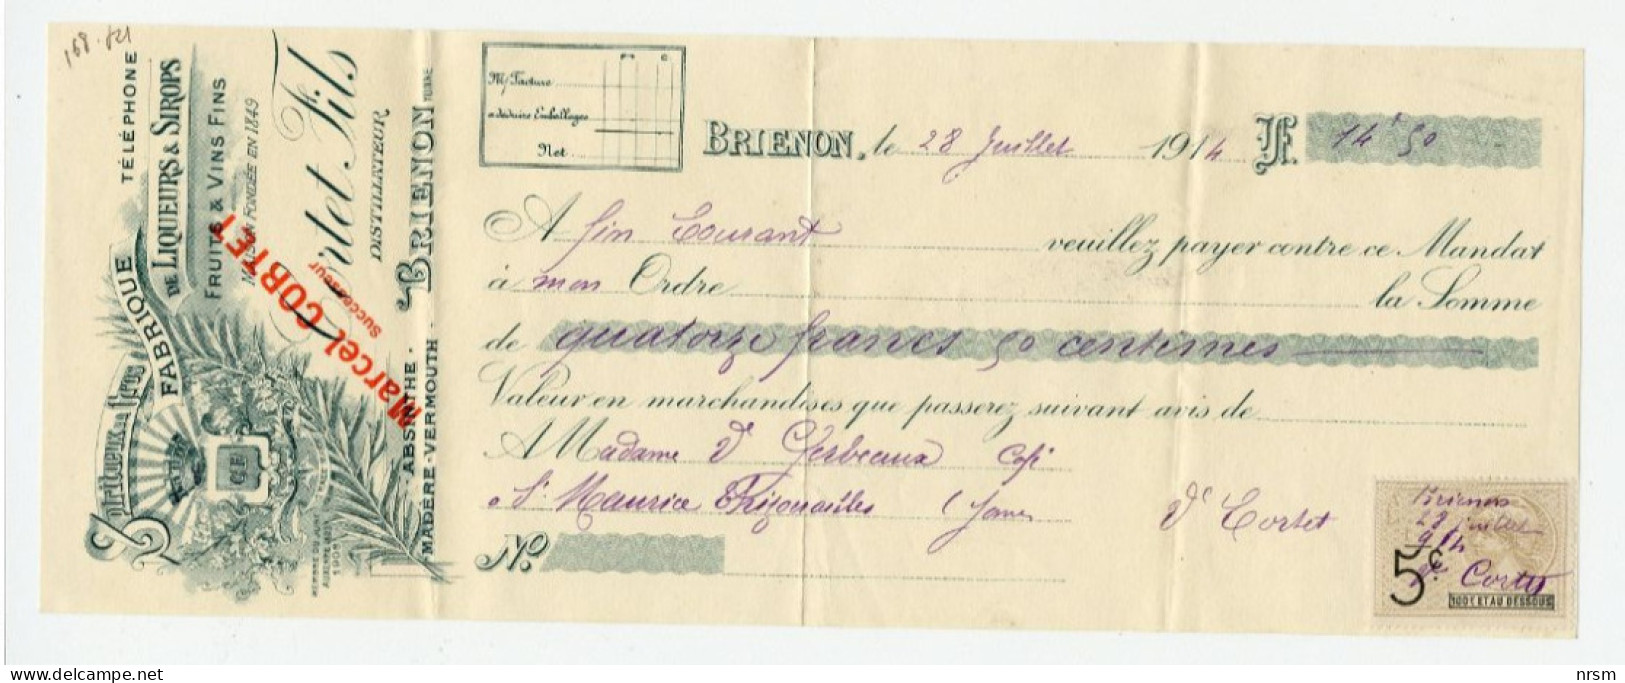 168.521
TÉLÉPHONE
FABRIQUE
DE LIQUEURS & SIROPS
FRUITS & VINS FINS
MAISON FONDÉE EN 1849
Cortet Fils
DISTILLATEUR
BRIENON YONNE
Marcel CORTET
Successeur
ABSINTHE
MADÈRE - VERMOUTH
Spiritueux en Gros
C.F.
1909
M/Facture
à déduire Emballages
Net
BRIENON, le 28 Juillet 1914 F. 14 f 50
A fin courant veuillez payer contre ce Mandat
à mon Ordre la Somme
de quatorze francs 50 centimes
Valeur en marchandises que passerez suivant avis de
A Madame Vᵉ Gerbeaux Café
à St Maurice Thizouailles (Yonne
Vᵉ Cortet
No.
Brienon
28 juillet
914
Vᵉ Cortet
5 c.
100 F. ET AU DESSOUS
delcampe.net
nrsm